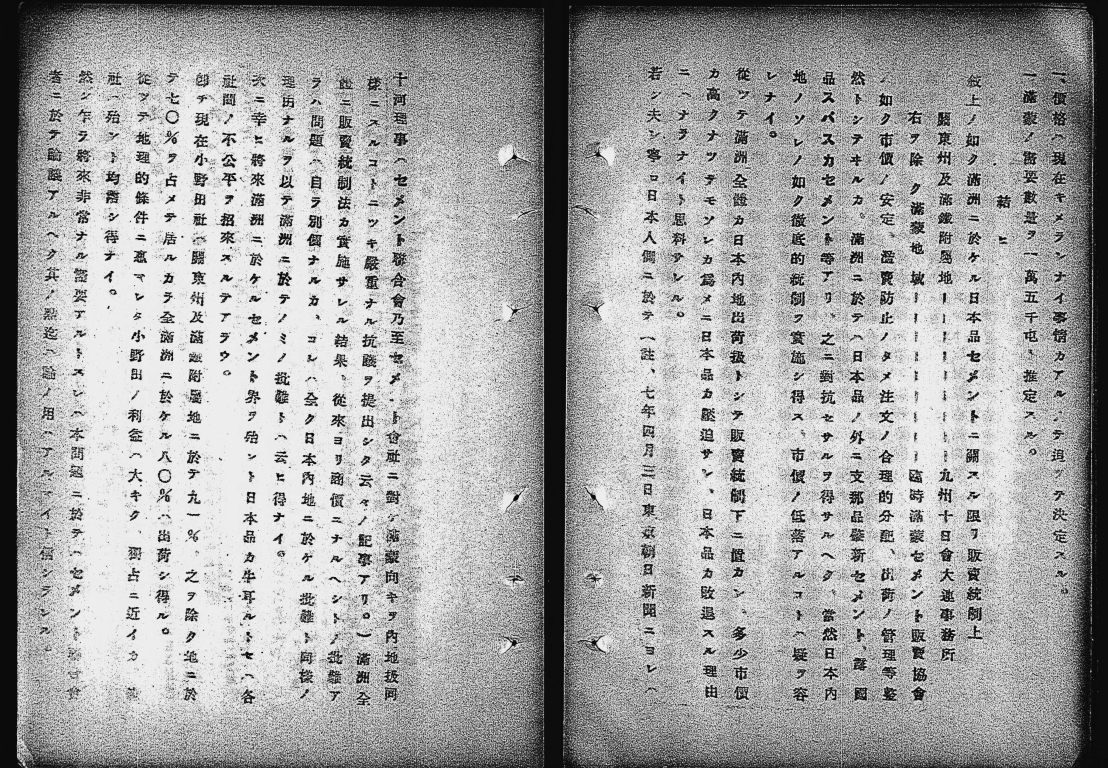 一、價格ハ現在キメラレナイ事情カアルノテ追ツテ決定スル。
一滿蒙ノ需要數量ヲ一萬五千屯ト推定スル。
結ヒ
敍上ノ如ク滿洲ニ於ケル日本品セメントニ關スル限リ販賣統制上
關東州及滿鐵附屬地ーーーーーーーー九州十日會大連事務所
右ヲ除ク滿蒙地域ーーーーーーーー臨時滿蒙セメント販賣協會
ノ如ク市價ノ安定、濫賣防止ノタメ注文ノ合理的分配、出荷ノ管理等整
然トシテヰルカ。滿洲ニ於テハ日本品ノ外ニ支那品啓新セメント、露國
品スパスカセメント等アリ、之ニ對抗セサルヲ得サルヘク、當然日本内
地ノソレノ如ク徹底的統制ヲ實施シ得ス、市價ノ低落アルコトハ疑ヲ容
レナイ。
從ツテ滿洲全體カ日本内地出荷扱トシテ販賣統制下ニ置カレ、多少市價
カ高クナツテモソレカ爲メニ日本品カ壓迫サレ、日本品カ敗退スル理由
ニハナラナイト思料サレル。
若シ夫レ寧ロ日本人側ニ於テ（註、七年四月三日東京朝日新聞ニヨレハ
十河理事ハセメント聯合會乃至セメント會社ニ對シ滿蒙向キヲ内地扱同
樣ニスルコトニツキ嚴重ナル抗議ヲ提出シタ云々ノ記事アリ。）滿洲全
體ニ販賣統制法カ實施サレル結果、從來ヨリ高價ニナルヘシトノ批難ア
ラハ問題ハ自ラ別個ナルカ、コレハ全ク日本内地ニ於ケル批難ト同樣ノ
理由ナルヲ以テ滿洲ニ於テノミノ批難トハ云ヒ得ナイ。
次ニ幸ヒ將來滿洲ニ於ケルセメント界ヲ殆ント日本品カ牛耳ルトセハ各
社間ノ不公平ヲ招來スルテアラウ。
卽チ現在小野田社ハ關東州及滿鐵附屬地ニ於テ九一％、之ヲ除ク地ニ於
テ七〇％ヲ占メテ居ルカラ全滿洲ニ於ケル八〇％ハ出荷シ得ル。
從ツテ地理的條件ニ惠マレタ小野田ノ利益ハ大キク、獨占ニ近イカ
社ハ殆ント均霑シ得ナイ。
然シ乍ラ將來非常ナル需要アルトスレハ本問題ニ於テハセメント聯合會
者ニ於テ論議アルヘク其ノ